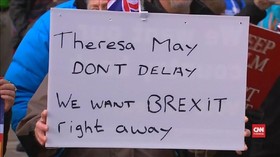 Theresa May
DON'T DELAY
WE WANT BREXIT
right away
CNN